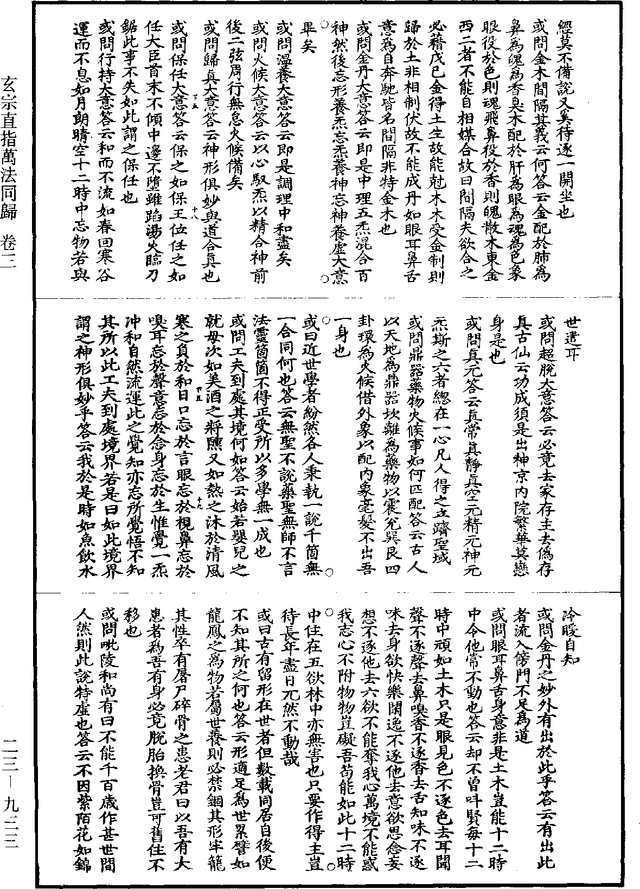 經莫不備說又奚待逐一開坐也
或問金木間隔其義云何答云金配於肺為
鼻為魄為香臭木配於肝為眼為魂為色象
眼役於色則魂飛鼻役於香則魄散木東金
西二者不能自相媒合故曰間隔夫欲合之
必藉戊己金得土生故能尅木木受金制則
歸於土非相制伏故不能成丹如眼耳鼻舌
意為自奔馳皆名間隔非特金木也
或問金丹大意答云即是中理五炁混合百
神然後忘形養炁忘炁養神忘神養虛大意
畢矣
或問溫養大意答云即是調理中和盡矣
或問火候大意答云以心馭炁以精合神前
後二弦周行無息火候備矣
或問歸真大意答云神形俱妙與道合真也
或問保任大意答云保之如保王位任之如
任大臣首末不傾中邊不墮雖蹈湯火臨刀
鋸此事不失如此謂之保任也
或問行持大意答云和而不流如春回寒谷
運而不息如月朗晴空十二時中忘物若與
世遺耳
或問超脫大意答云必竟去冢存主去偽存
真古仙云功成須是出神京內院繁華莫戀
身是也
或問真元答云真常真靜真空元精元神元
炁斯之六者總在一心凡人得之立躋聖域
或問鼎器藥物火候事如何匹配答云古人
以天地為鼎器坎離為藥物以震兌巽艮四
卦環為火候借外象以配內象毫髮不出吾
一身也
或曰近世學者紛然各人秉執一說千箇無
一合同何也答云無聖不說藥聖無師不言
法靈箇箇不得正受所以多學無一成也
或問工夫到處其境何如答云始若嬰兒之
就母次如美酒之將醺又如熱之沐於清風
寒之負於和日口忘於言眼忘於視鼻忘於
嗅耳忘於聲意忘於念身忘於生惟覺一炁
沖和自然流運此之覺知亦忘所覺悟不知
其所以此工夫到處境界若是曰如此境界
謂之神形俱妙乎答云我於是時如魚飲水
冷暖自知
或問金丹之妙外有出於此乎答云有出此
者流入傍門不足為道
或問眼耳鼻舌身意非是土木豈能十二時
中令他常不動也答云却不曾呌緊每十二
時中頑如土木只是眼見色不逐色去耳聞
聲不逐聲去鼻嗅香不逐香去舌知味不逐
味去身欲快樂闊逸不逐他去意欲思念妄
想不逐他去六欲不能奪我心萬境不能惑
我忘心不附物物豈礙吾苟能如此十二時
中住在五欲林中亦無害也只要作得主豈
待長年盡日兀然不動哉
或曰古有留形在世者但數載同居自後便
不知其所之何也答云形適足為世累譬如
龍鳳之為物若屬世養則必禁錮其形牢籠
其性卒有屠尸碎骨之患老君曰以吾有大
患者為吾有身必竟脫胎換骨豈可舊住不
移也
或問毗陵和尚有曰不能千百歲作甚世間
人然則此說特虛也答云不因紫陌花如錦
玄宗直指萬法同歸 卷三
二三—九三三